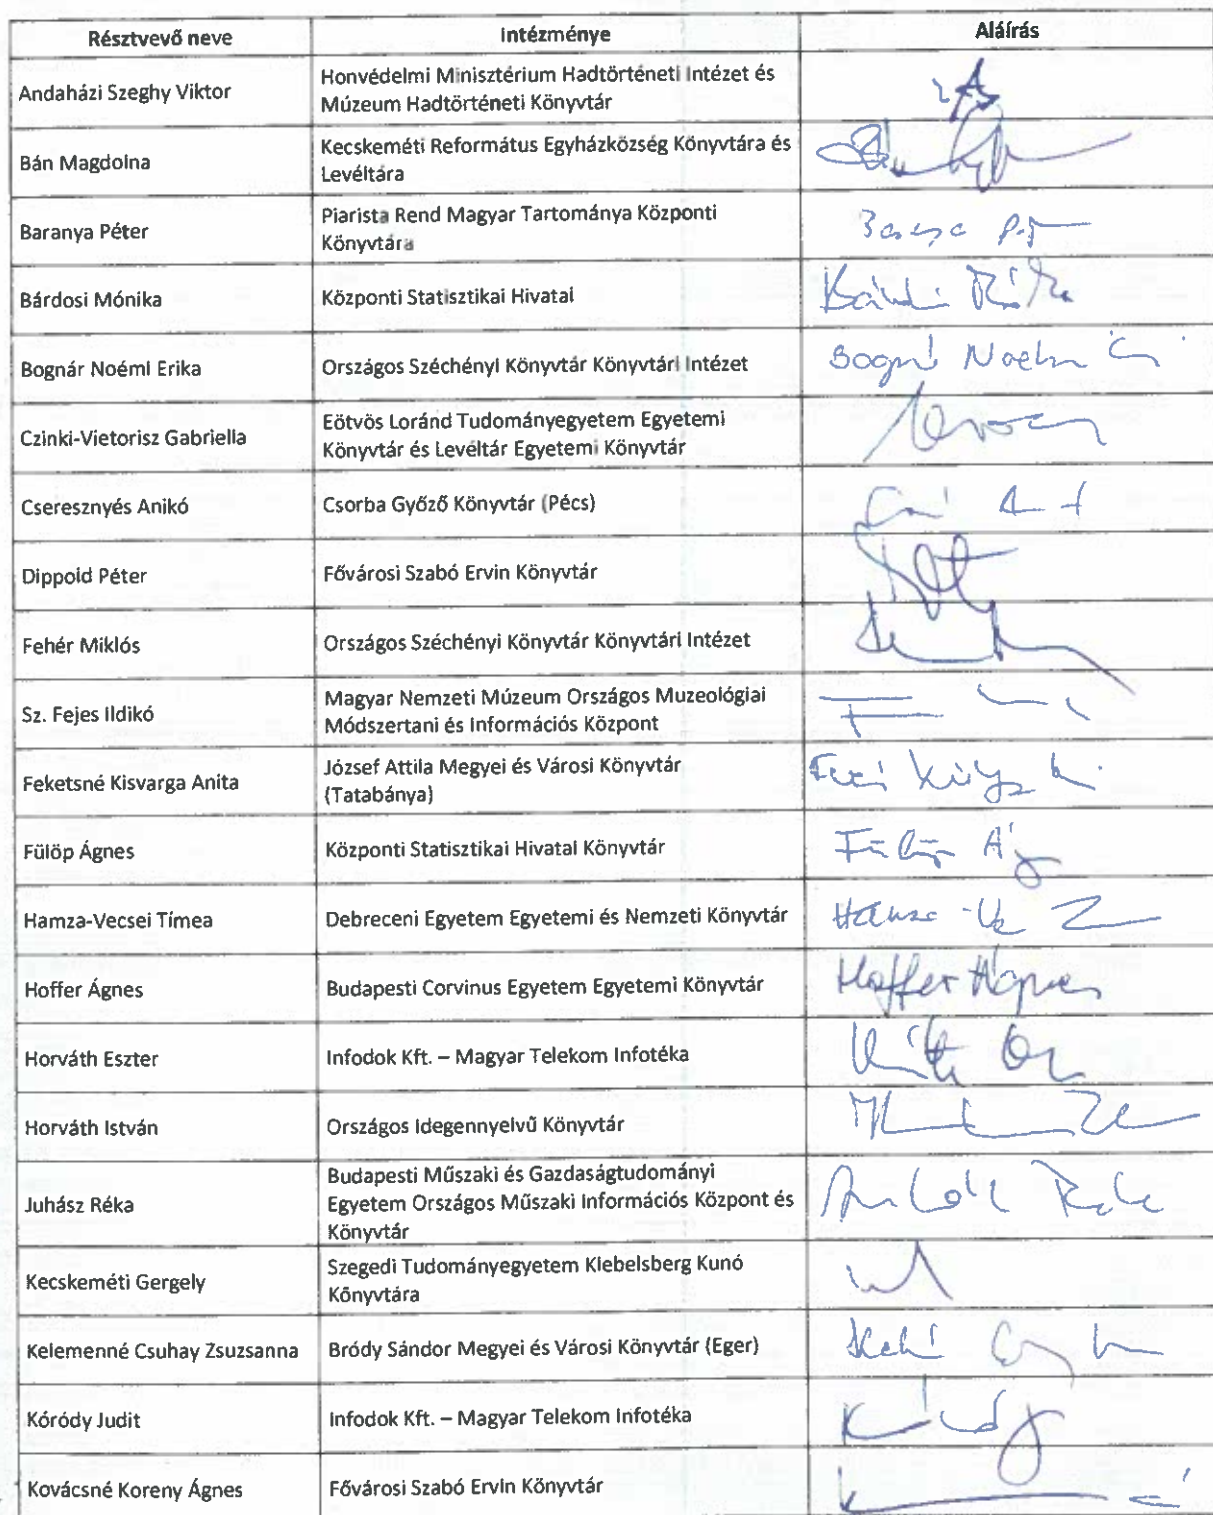 Résztvevő neve Intézménye Aláírás
Andaházi Szeghy Viktor
Honvédelmi Minisztérium Hadtörténeti Intézet és
Múzeum Hadtörténeti Könyvtár
Bán Magdolna
Kecskeméti Református Egyházközség Könyvtára és
Levéltára
Baranya Péter
Piarista Rend Magyar Tartománya Központi
Könyvtára
Bárdosi Mónika Központi Statisztikai Hivatal
Bognár Noémi Erika Országos Széchényi Könyvtár Könyvtári Intézet
Czinki-Vietorisz Gabriella
Eötvös Loránd Tudományegyetem Egyetemi
Könyvtár és Levéltár Egyetemi Könyvtár
Cseresznyés Anikó Csorba Győző Könyvtár (Pécs)
Dippold Péter Fővárosi Szabó Ervin Könyvtár
Fehér Miklós Országos Széchényi Könyvtár Könyvtári Intézet
Sz. Fejes Ildikó
Magyar Nemzeti Múzeum Országos Muzeológiai
Módszertani és Információs Központ
Feketsné Kisvarga Anita
József Attila Megyei és Városi Könyvtár
(Tatabánya)
Fülöp Ágnes Központi Statisztikai Hivatal Könyvtár
Hamza-Vecsei Tímea Debreceni Egyetem Egyetemi és Nemzeti Könyvtár
Hoffer Ágnes Budapesti Corvinus Egyetem Egyetemi Könyvtár Hoffer Ágnes
Horváth Eszter Infodok Kft. – Magyar Telekom Infotéka
Horváth István Országos Idegennyelvű Könyvtár
Juhász Réka
Budapesti Műszaki és Gazdaságtudományi
Egyetem Országos Műszaki Információs Központ és
Könyvtár
Kecskeméti Gergely
Szegedi Tudományegyetem Klebelsberg Kunó
Könyvtára
Kelemenné Csuhay Zsuzsanna Bródy Sándor Megyei és Városi Könyvtár (Eger)
Kóródy Judit Infodok Kft. – Magyar Telekom Infotéka
Kovácsné Koreny Ágnes Fővárosi Szabó Ervin Könyvtár